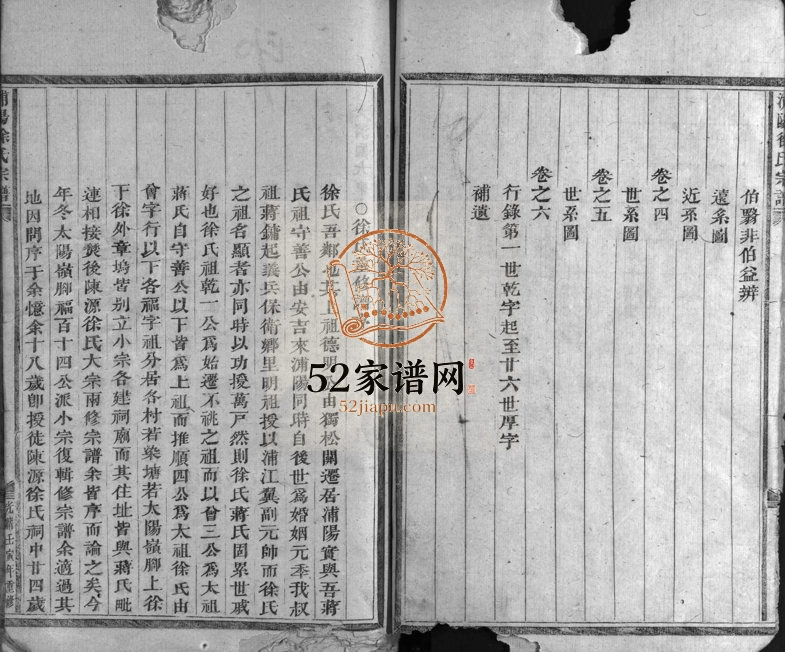 浦陽徐氏宗譜
伯翳非伯益辨
遠系圖
近系圖
卷之四
世系圖
卷之五
世系圖
卷之六
行錄第一世乾字起至廿六世厚字
補遺
徐氏重修譜序
徐氏吾鄉也其上祖德明公由獨松關遷居浦陽實與吾蔣
氏祖守善公由安吉來浦陽同時自後世爲婚姻元季我叔
祖蔣鏞起義兵保衛鄉里明祖授以浦江翼副元帥而徐氏
之祖名顯者亦同時以功授萬戸然則徐氏蔣氏固累世戚
好也徐氏祖乾一公爲始遷不祧之祖而以曾三公爲太祖
蔣氏自守善公以下皆爲上祖而推順四公爲太祖徐氏由
曾字行以下各福字祖分居各村若染塘若太陽嶺腳上徐
下徐外章塢皆别立小宗各建祠廟而其住址皆與蔣氏毗
連相接襲後陳源徐氏大宗兩修宗譜余皆序而論之矣今
年冬太陽嶺腳福百十四公派小宗復輯修宗譜余適過其
地因問序于余憶余十八歲卽授徒陳源徐氏祠中廿四歲
浦陽徐氏宗譜
光緒壬寅年重修
52家谱网
52jiapu.com